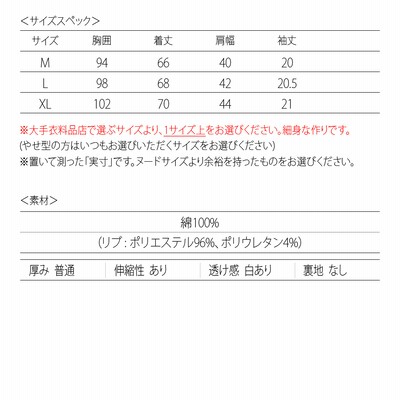 ＜サイズスペック＞
サイズ 胸囲 着丈 肩幅 袖丈
M 94 66 40 20
L 98 68 42 20.5
XL 102 70 44 21
※大手衣料品店で選ぶサイズより、1サイズ上をお選びください。細身な作りです。
(やせ型の方はいつもお選びいただくサイズをお選びください)
※置いて測った「実寸」です。ヌードサイズより余裕を持ったものをお選びください。
＜素材＞
綿100%
（リブ：ポリエステル96%、ポリウレタン4%）
厚み 普通 伸縮性 あり 透け感 白あり 裏地 なし